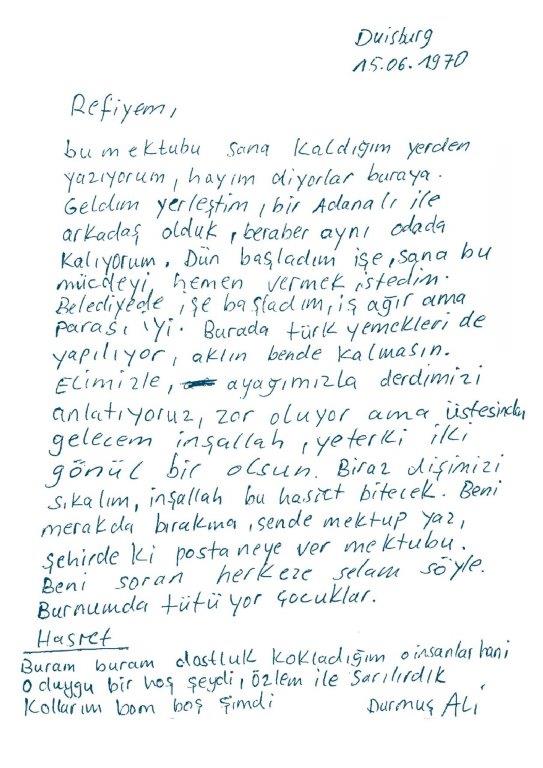 Duisburg
15.06.1970
Refiyem,
bu mektubu sana kaldığım yerden
yazıyorum, hayım diyorlar buraya.
Geldım yerleştim, bir Adanalı ile
arkadaş olduk, beraber aynı odada
kalıyorum. Dün başladım işe, sana bu
müjdeyi, hemen vermek istedim.
Belediyede işe başladım, iş ağır ama
parası iyi. Burada türk yemekleri de
yapılıyor, aklın bende kalmasın.
Elimizle, ayağımızla derdimizi
anlatıyoruz, zor oluyor ama üstesinden
gelecem inşallah, yeterki iki
gönül bir olsun. Biraz dişimizi
sıkalım, inşallah bu hasret bitecek. Beni
merakda bırakma, sende mektup yaz,
şehirde ki postaneye ver mektubu.
Beni soran herkeze selam söyle.
Burnumda tütüyor çocuklar.
Hasret
Buram buram dostluk kokladığım o insanlar hani
o duygu bir hoş şeydi, özlem ile sarılırdık
Kollarım bom boş şimdi Durmuş Ali